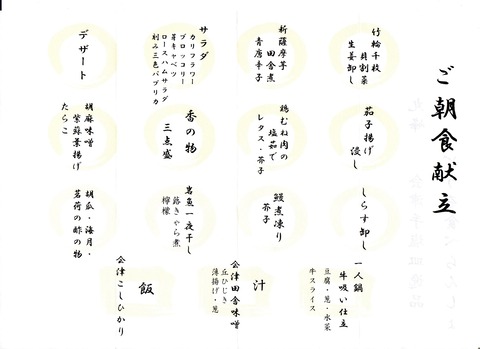 ご朝食献立
竹輪千枚
貝割菜
生姜卸し
新薩摩芋
田舎煮
青唐辛子
サラダ
カリフラワー
ブロッコリー
芽キャベツ
ロースハムサラダ
刻み三色パプリカ
デザート
茄子揚げ
浸し
鶏むね肉の
塩茹で
レタス・芥子
香の物
三点盛
胡麻味噌
紫蘇葉揚げ
たらこ
しらす卸し
鰻煮凍り
芥子
岩魚一夜干し
蕗きゃら煮
檸檬
胡瓜・海月・
茗荷の酢の物
一人鍋
牛吸い仕立
豆腐・葱・水菜
牛スライス
汁
会津田舎味噌
丘ひじき
薄揚げ・葱
飯
会津こしひかり